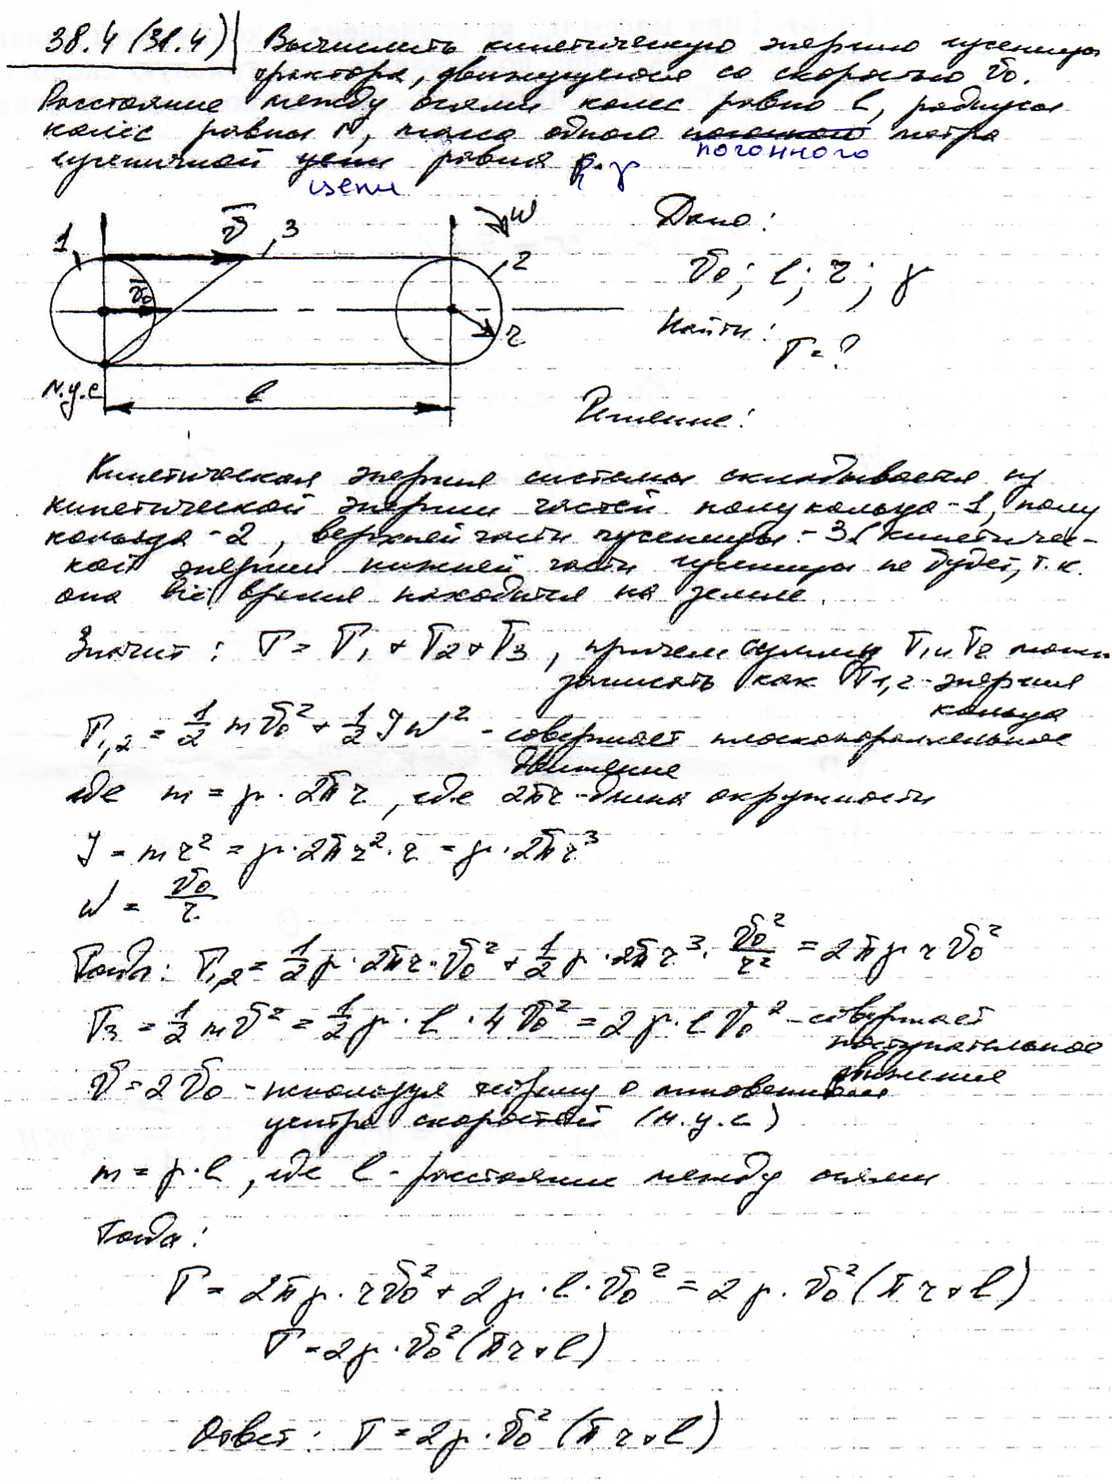 38.4 (31.4) Вычислить кинетическую энергию гусеницы
трактора, движущегося со скоростью v₀.
Расстояние между осями колес равно l, радиусы
колес равны r, масса одного погонного метра
гусеничной цепи равна γ.
1 v̅ 3 ω 2
v̅₀ r
м.ц.с l
Дано:
v₀; l; r; γ
Найти:
T = ?
Решение:
Кинетическая энергия системы складывается из
кинетической энергии частей полукольца - 1, полу
кольца - 2, верхней части гусеницы - 3. (кинетичес-
кой энергии нижней части гусеницы не будет, т.к.
она все время находится на земле.
Значит: T = T₁ + T₂ + T₃, причем сумму T₁ и T₂ можн
записать как T₁,₂ - энергия
кольца
T₁,₂ = 1/2 m v₀² + 1/2 J ω² - совершает плоскопараллельное
движение
где m = γ · 2πr, где 2πr - длина окружности
J = m r² = γ · 2πr² · r = γ · 2πr³
ω = v₀/r
Тогда: T₁,₂ = 1/2 γ · 2πr · v₀² + 1/2 γ · 2πr³ · v₀²/r² = 2πγ r v₀²
T₃ = 1/2 m v² = 1/2 γ · l · 4 v₀² = 2γ · l v₀² - совершает
поступательное
движение
v = 2v₀ - используя теорему о мгновенном
центре скоростей (м.ц.с)
m = γ · l, где l - расстояние между осями
Тогда:
T = 2πγ · r v₀² + 2γ · l · v₀² = 2γ · v₀² (πr + l)
T = 2γ · v₀² (πr + l)
Ответ: T = 2γ · v₀² (πr + l)